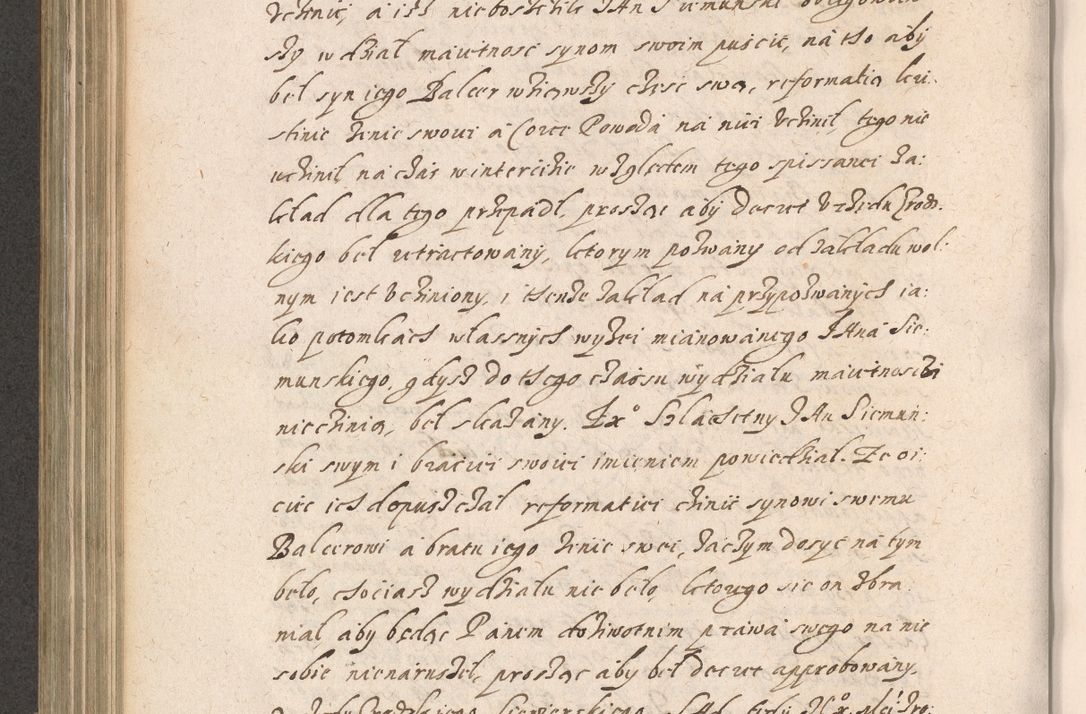 vchinic, a isz nieboszczik JAn Siemunski obligowaw
szy w dział maiętnosc synom swoim puscic, na tho aby
beł syn iego Balcer wziąwszy częsc swą, reformatią leui:
stinie żenie swoiei a Corce Powoda na niei vcinił, tego nie
uczinił na czas w intercizie względem tego spissanei za:
kład dla tego przepadł, prosząc aby decret Vrzędu Grodz:
kiego beł retractowany, ktorym pozwany od zakładu wol:
nym iest vcziniony, i tsenże zakład na przypozwanych ia:
ko potomkach własnych wyżei mianowanego JAna Sie:
munskiego, gdysz do thego czassu wydziału maiętnosczi
nieczinią, beł skazany. Ex° Szlachetny JAn Siemun:
ski swym i braciei swoiei imieniem powiedział. Ze oi:
ciec ich dopuszczał reformatiei czinic synowi swemu
Balcerowi a bratu iego żenie swei, zaczym dosyc na tym
beło, chociasz wydziału nie beło, ktorego sie on zbra
niał, aby będąc Panem dożiwotnim prawa swego na nie
sobie nienaruszeł, prosząc aby beł decret approbowany.